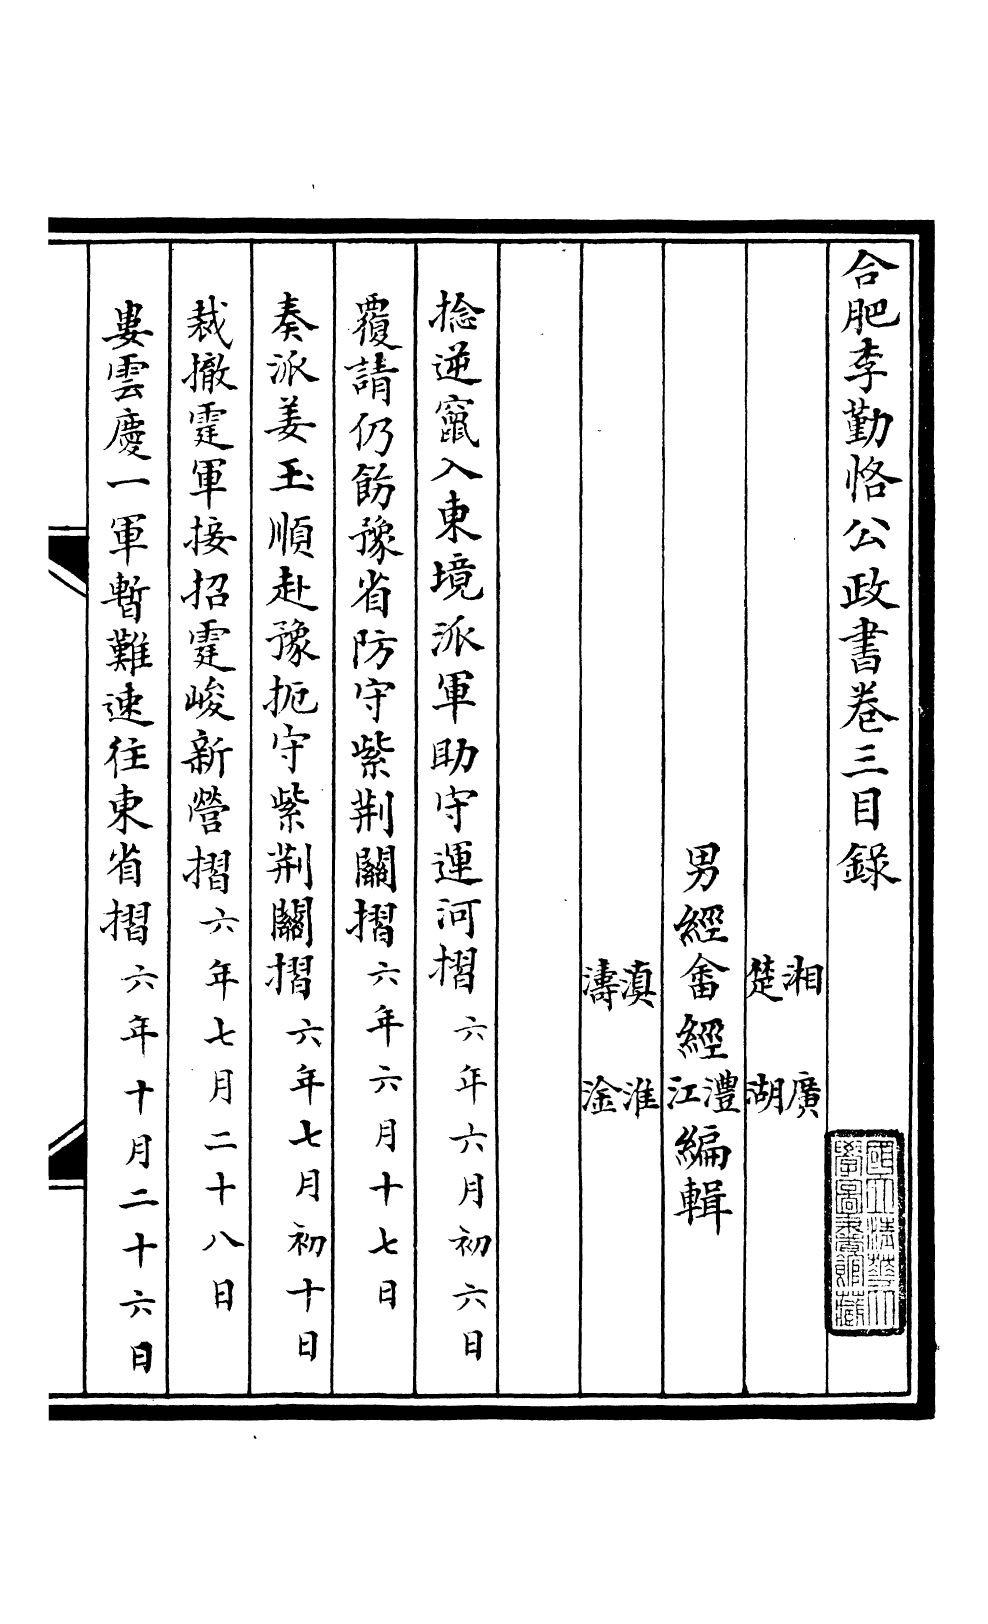 合肥李勤恪公政書卷三目錄
國立清華大
學圖書館藏
湘　廣
楚　湖
男經畬經澧江編輯
滇　淮
濤　淦
捻逆竄入東境派軍助守運河摺六年六月初六日
覆請仍飭豫省防守紫荆關摺六年六月十七日
奏派姜玉順赴豫扼守紫荆關摺六年七月初十日
裁撤霆軍接招霆峻新營摺六年七月二十八日
婁雲慶一軍暫難速往東省摺六年十月二十六日